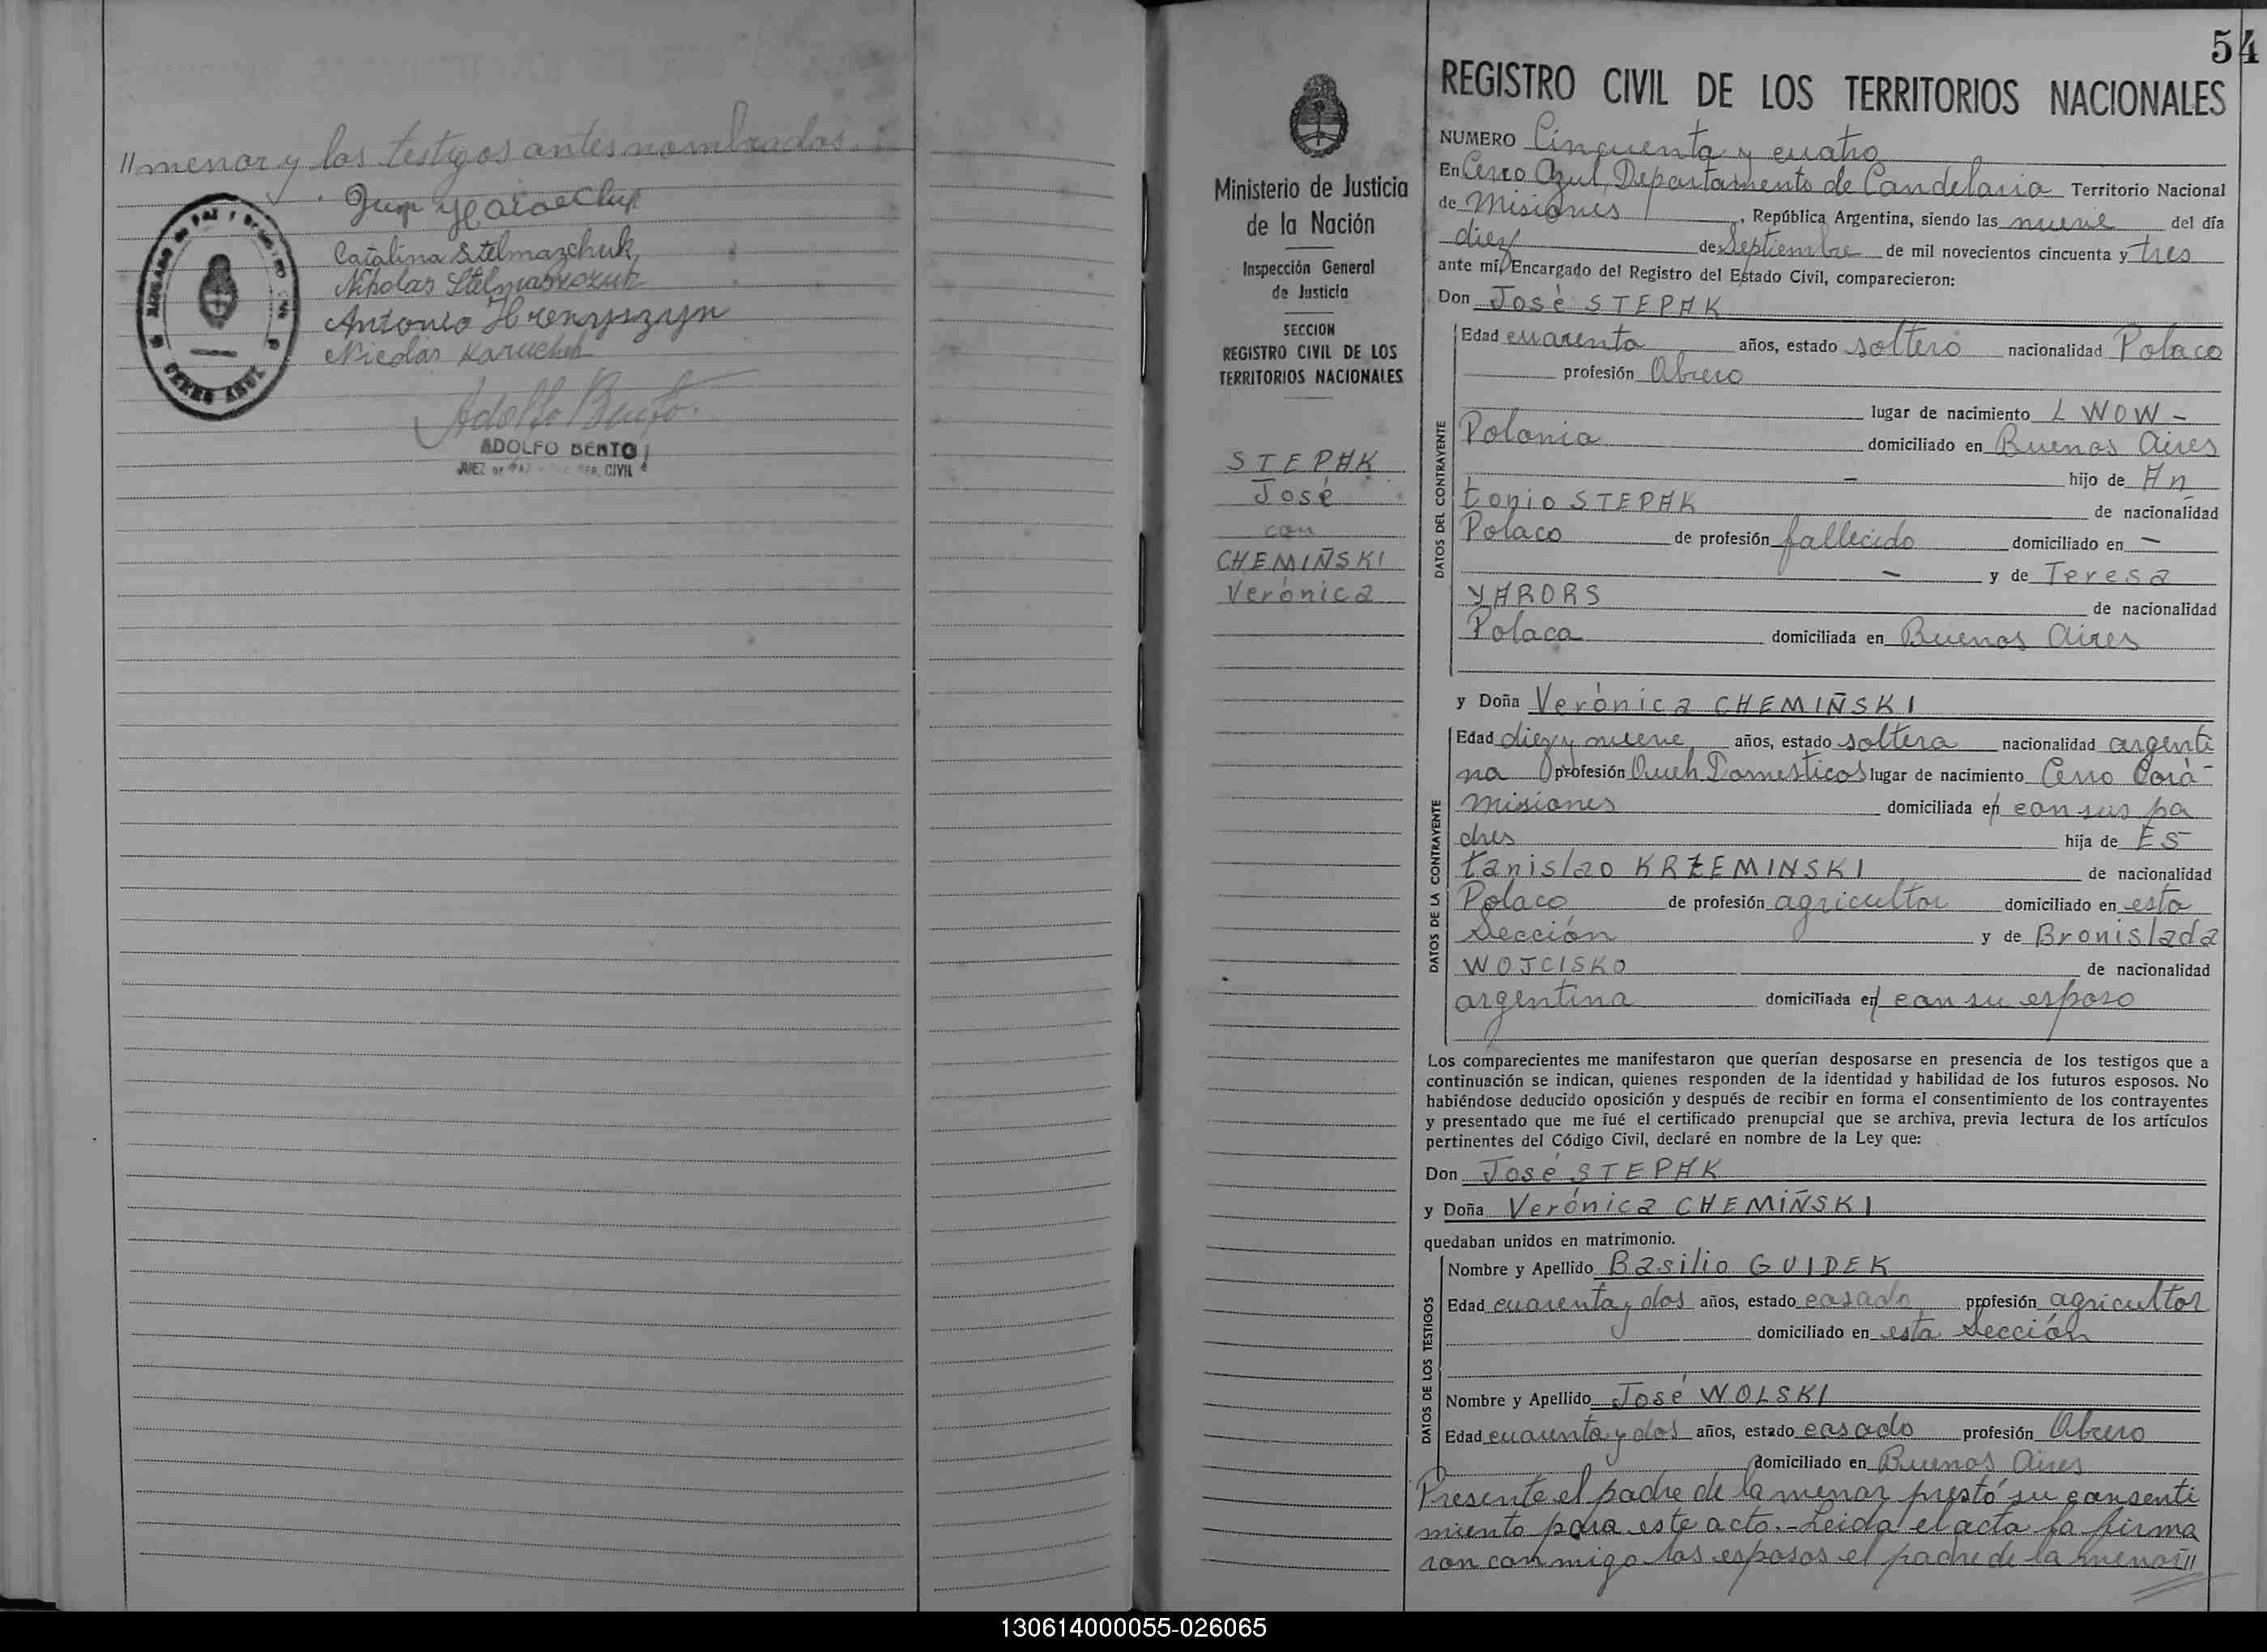 // menor y los testigos antes nombrados.
Catalina Stelmaszchuk
Nikolas Stelmaszczuk
Antonio Hrenyszyn
Nicolás Karuchek
Adolfo Bento.
CERRO AZUL
ADOLFO BENTO
JUEZ DE PAZ CIVIL
54
Ministerio de Justicia
de la Nación
Inspección General
de Justicia
SECCION
REGISTRO CIVIL DE LOS
TERRITORIOS NACIONALES
STEPAK
José
con
CHEMIÑSKI
Verónica
REGISTRO CIVIL DE LOS TERRITORIOS NACIONALES
NUMERO Cincuenta y cuatro
En Cerro Azul, Departamento de Candelaria Territorio Nacional
de Misiones, República Argentina, siendo las nueve del día
diez de Septiembre de mil novecientos cincuenta y tres
ante mí, Encargado del Registro del Estado Civil, comparecieron:
Don José STEPAK
DATOS DEL CONTRAYENTE
Edad cuarenta años, estado soltero nacionalidad Polaco
profesión Obrero
lugar de nacimiento LWOW -
Polonia domiciliado en Buenos Aires
- hijo de An
tonio STEPAK de nacionalidad
Polaco de profesión fallecido domiciliado en -
- y de Teresa
YARORS de nacionalidad
Polaca domiciliada en Buenos Aires
y Doña Verónica CHEMIÑSKI
DATOS DE LA CONTRAYENTE
Edad diez y nueve años, estado soltera nacionalidad argenti
na profesión Queh Domesticos lugar de nacimiento Cerro Corá-
Misiones domiciliada en con sus pa
dres hija de ES
tanislao KRZEMINSKI de nacionalidad
Polaco de profesión agricultor domiciliado en esta
Sección y de Bronislada
WOJCISKO de nacionalidad
argentina domiciliada en con su esposo
Los comparecientes me manifestaron que querían desposarse en presencia de los testigos que a
continuación se indican, quienes responden de la identidad y habilidad de los futuros esposos. No
habiéndose deducido oposición y después de recibir en forma el consentimiento de los contrayentes
y presentado que me fué el certificado prenupcial que se archiva, previa lectura de los artículos
pertinentes del Código Civil, declaré en nombre de la Ley que:
Don José STEPAK
y Doña Verónica CHEMIÑSKI
quedaban unidos en matrimonio.
DATOS DE LOS TESTIGOS
Nombre y Apellido Basilio GUIDEK
Edad cuarenta y dos años, estado casado profesión agricultor
domiciliado en esta Sección
Nombre y Apellido José WOLSKI
Edad cuarenta y dos años, estado casado profesión Obrero
domiciliado en Buenos Aires
Presente el padre de la menor prestó su consenti
miento para este acto.- Leida el acta la firma
ron conmigo los esposos el padre de la menor //
130614000055-026065